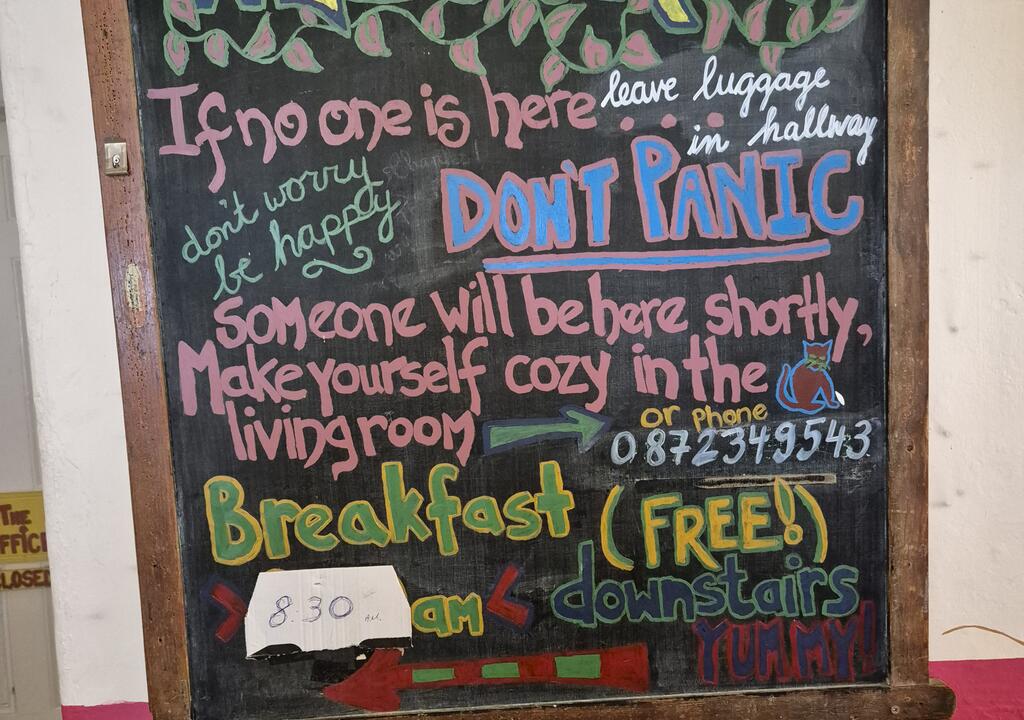 If no one is here ....
leave luggage
in hallway
don't worry
be happy
DON'T PANIC
someone will be here shortly,
Make yourself cozy in the
living room
or phone
0872349543
Breakfast (FREE!)
8.30 A.M. am
downstairs
YUMMY!
THE
OFFICE
CLOSED